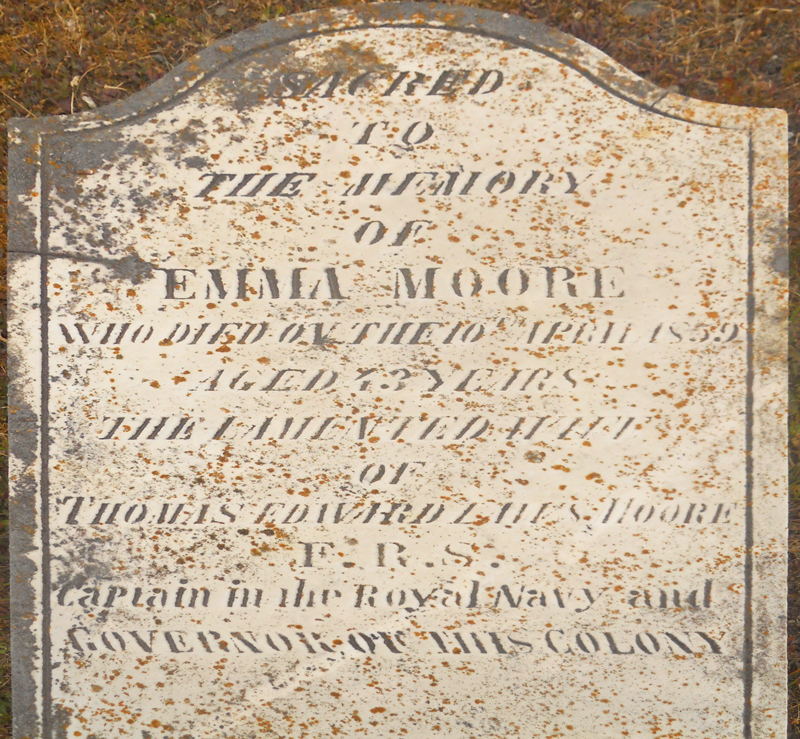 SACRED
TO
THE MEMORY
OF
EMMA MOORE
WHO DIED ON THE 10th APRIL 1859
AGED 43 YEARS
THE LAMENTED WIFE
OF
THOMAS EDWARD LAWS MOORE
F.R.S.
Captain in the Royal Navy and
GOVERNOR OF THIS COLONY